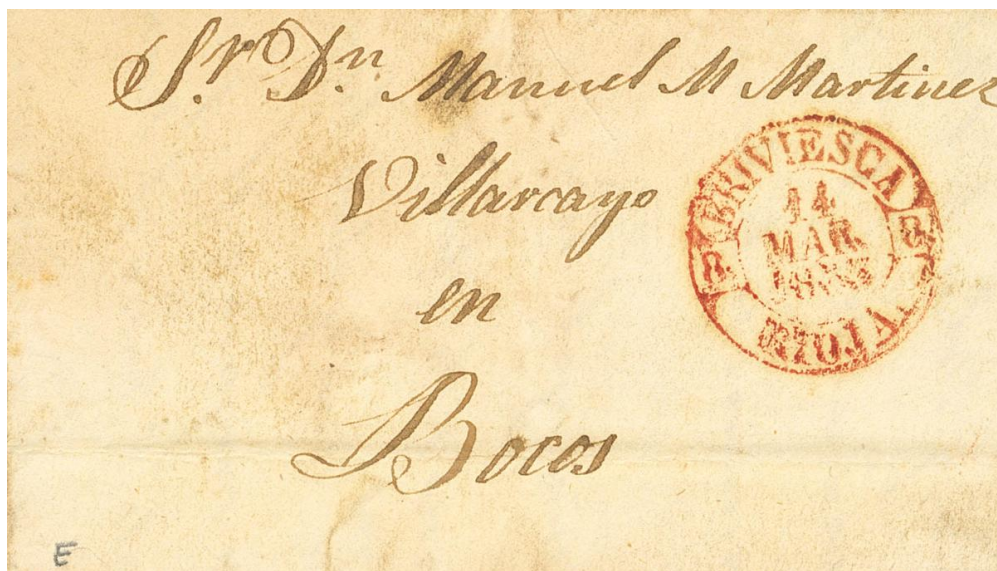 Sr. Dn. Manuel M Martinez
Villarcayo
en
Bocos
BRIVIESCA
14
MAR.
RIOJA.
8
8
E